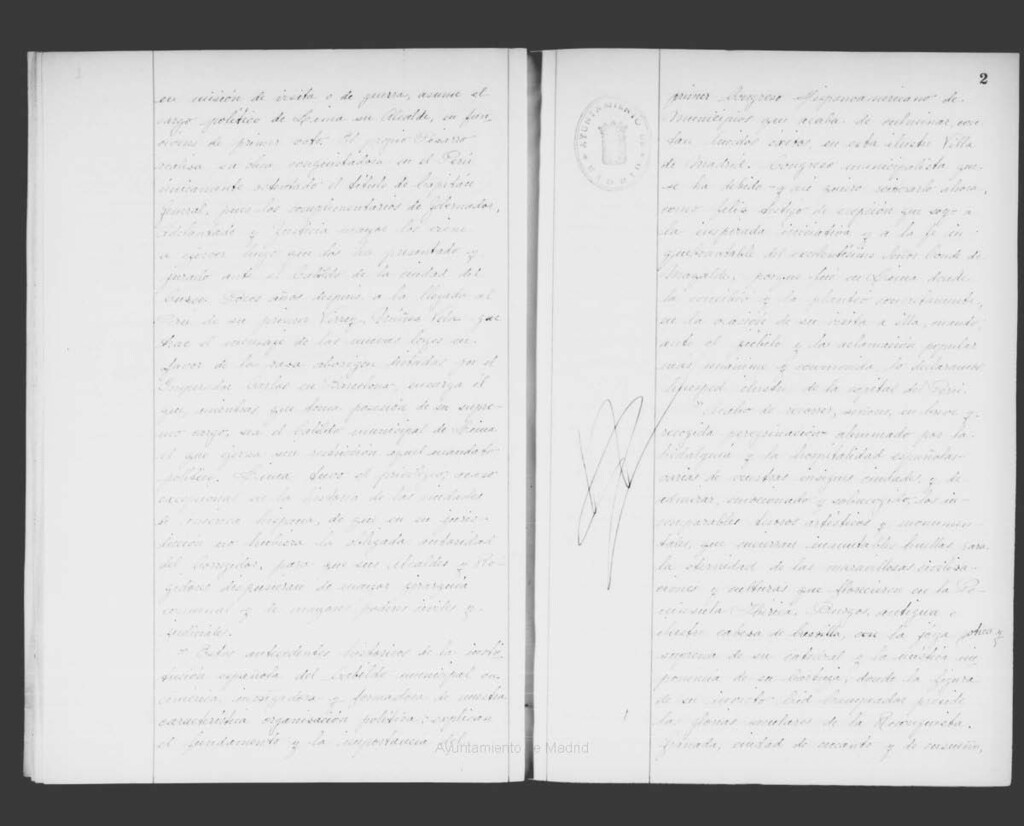 en misión de visita o de guerra, asume el
cargo político de Lima su Alcalde, en fun
ciones de primer voto. El propio Pizarro
realiza su obra conquistadora en el Perú
únicamente ostentando el título de Capitán
General, pues los complementarios de Gobernador,
Adelantado y Justicia mayor los viene
a ejercer luego que los ha presentado y
jurado ante el Cabildo de la ciudad del
Cuzco. Doce años después a la llegada al
Perú de su primer Virrey Núñez Vela que
trae el mensaje de las nuevas leyes en
favor de la raza aborigen dictadas por el
Emperador Carlos en Barcelona, encarga él
que, mientras que toma posesión de su supre
mo cargo, sea el Cabildo municipal de Lima
el que ejerza sin restricción aquel mandato
político. Lima tuvo el privilegio, caso
excepcional en la historia de las ciudades
de América hispana, de que en su juris-
dicción no hubiera la obligada autoridad
del Corregidor, para que sus Alcaldes y Re-
gidores dispusieran de mayor jerarquía
comunal y de mayores poderes civiles y
judiciales.
"Estos antecedentes históricos de la insti
tución española del Cabildo municipal en
América, investigadora y formadora de nuestra
característica organización política, explican
el fundamento y la importancia del
2
primer Congreso Hispanoamericano de
Municipios que acaba de culminar, con
tan lucidos éxitos, en esta ilustre Villa
de Madrid. Congreso municipalista que
se ha debido y así quiero recordarlo ahora,
como feliz testigo de excepción que soy a
la inspirada iniciativa y a la fe in-
quebrantable del excelentísimo señor Conde de
Mayalde, porque fué en Lima donde
la concibió y la planteó concretamente,
en la ocasión de su visita a ella, cuando
ante el júbilo y la aclamación popular
más unánime y conmovida, lo declaramos
Huésped ilustre de la capital del Perú.
"Acabo de recorrer, señores, en breve y
recogida peregrinación alumbrado por la
hidalguía y la hospitalidad españolas
varias de vuestras insignes ciudades, y de
admirar, emocionado y sobrecogido, los in-
comparables tesoros artísticos y monumen-
tales, que encierran inmutables huellas para
la eternidad de las maravillosas civiliza-
ciones y culturas que florecieron en la Pe-
nínsula Ibérica. Burgos, antigua e
ilustre cabeza de Castilla, con la joya pétrea y
suprema de su catedral y la mística im
ponencia de su Cartuja, donde la figura
de su invicto Cid Campeador preside
las glorias seculares de la Reconquista.
Granada, ciudad de encanto y de ensueño,
AYUNTAMIENTO DE MADRID
Ayuntamiento de Madrid